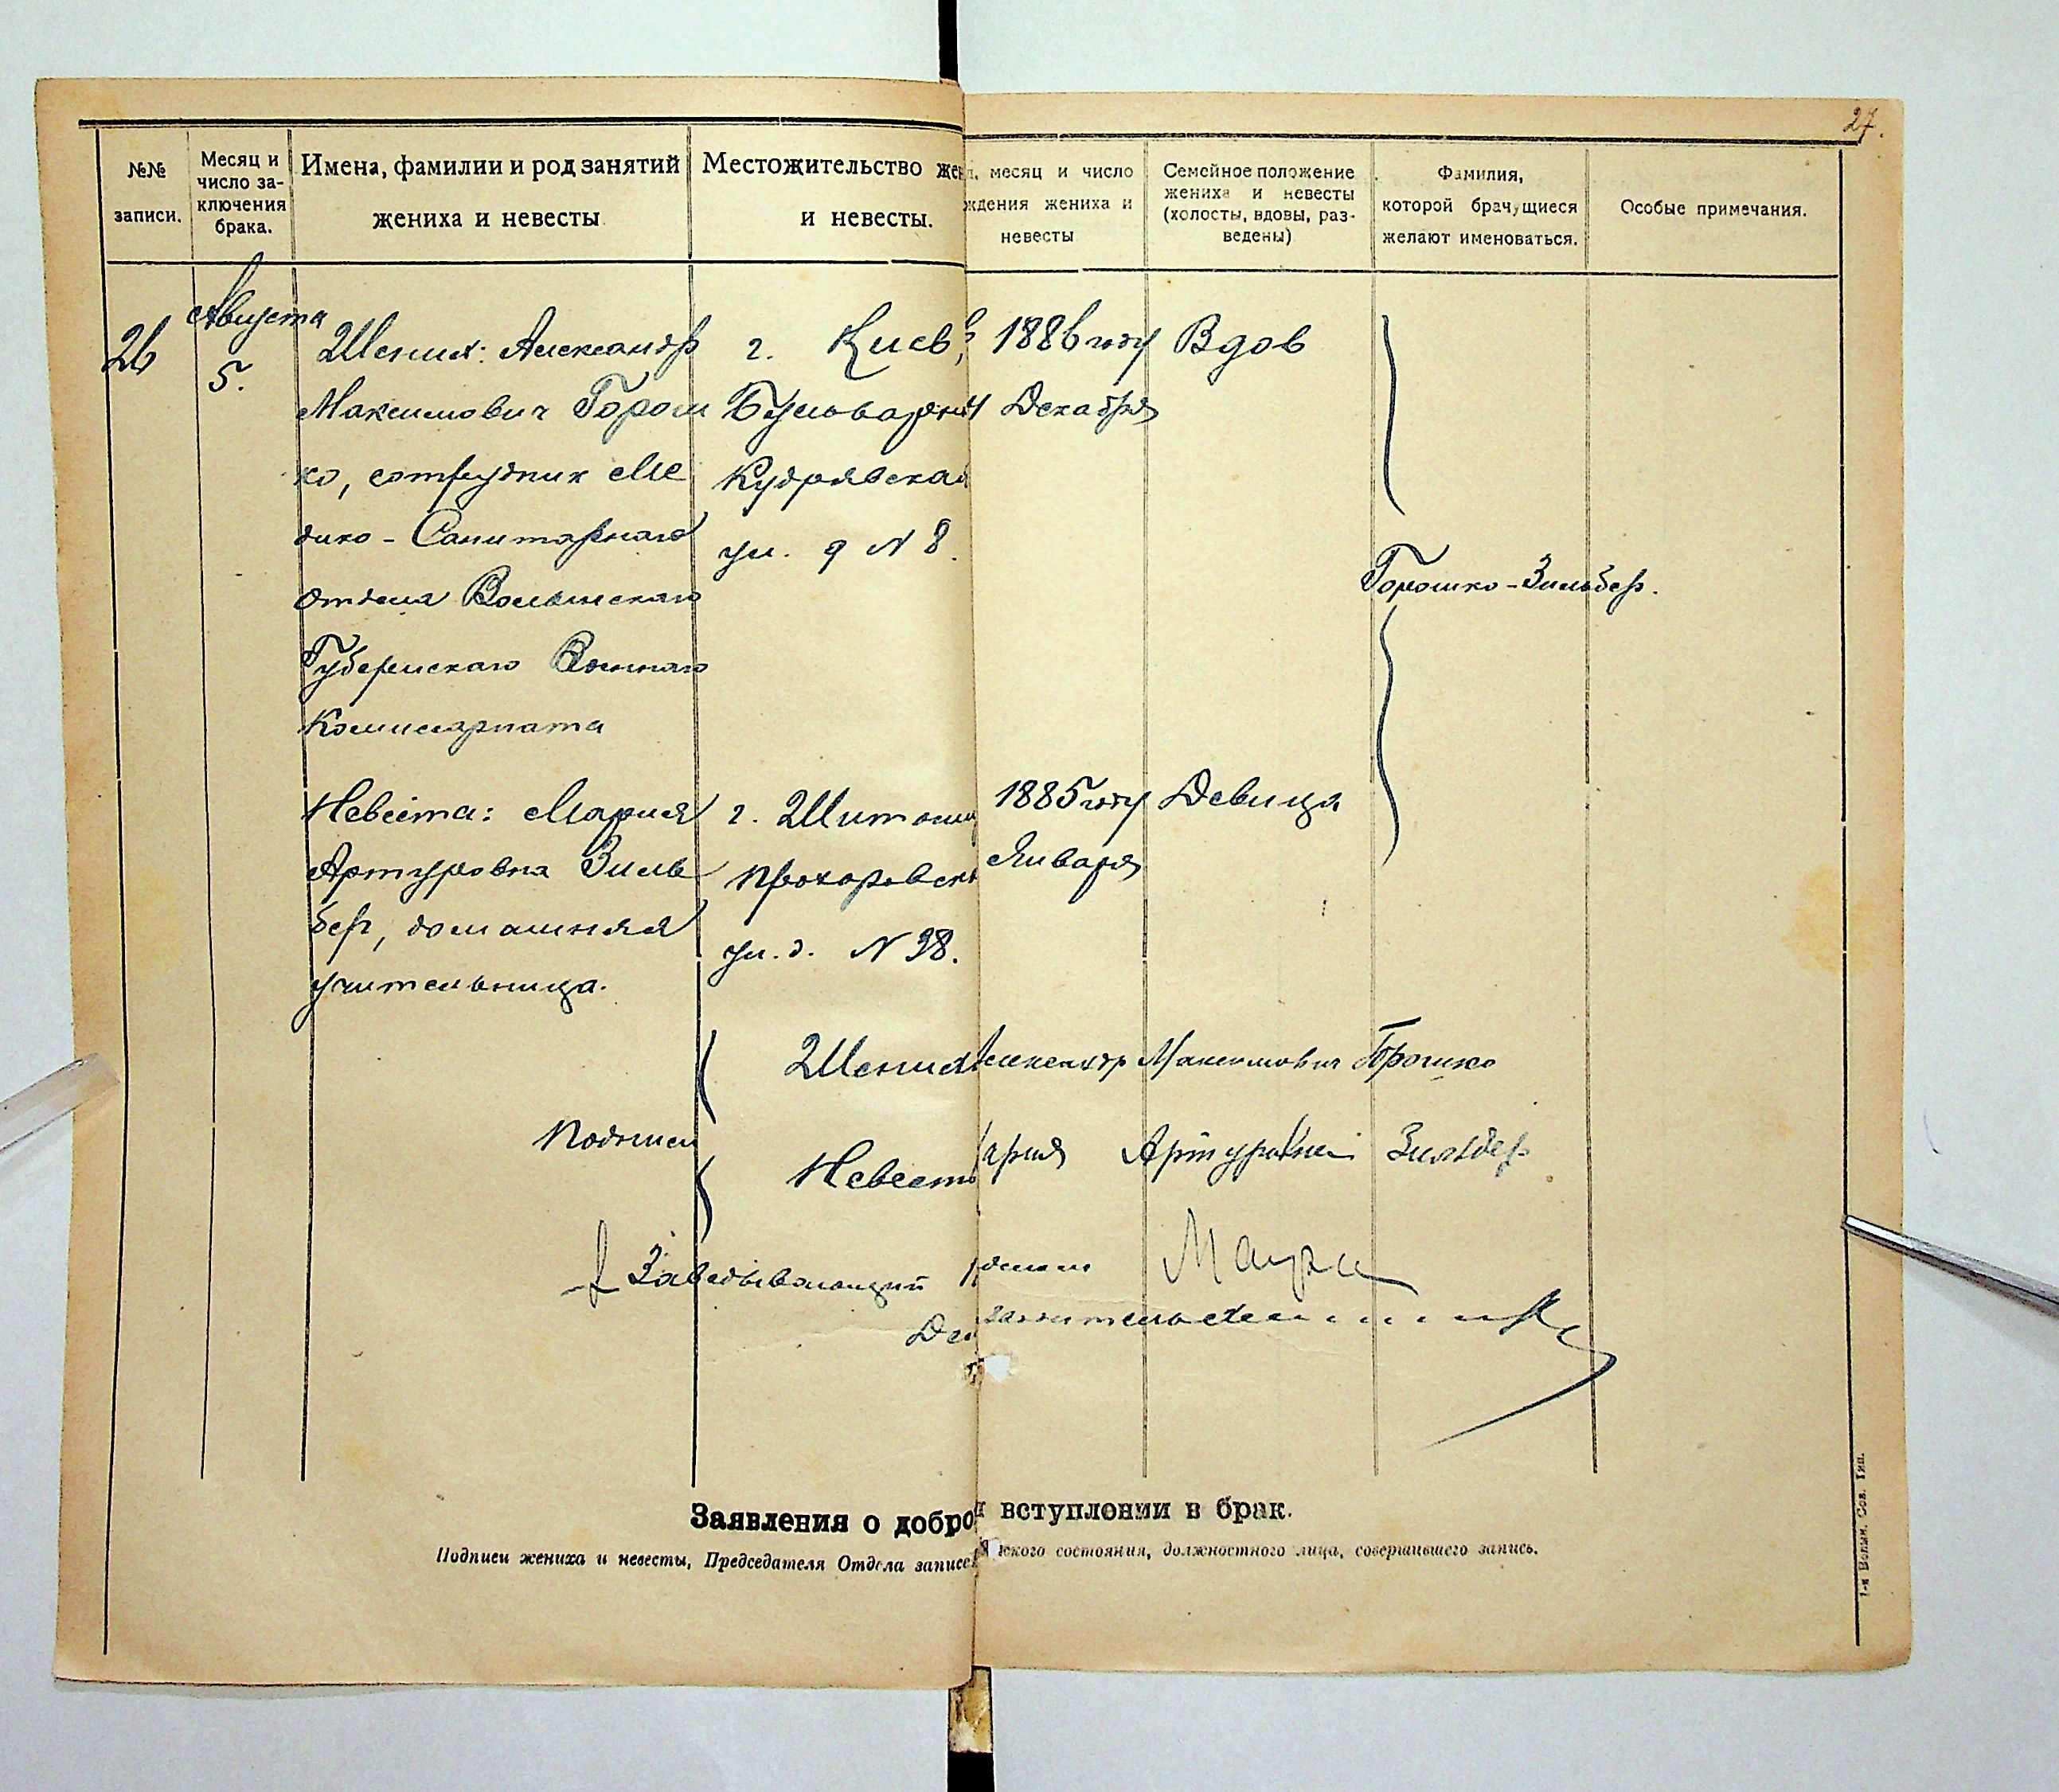 27.
№№ записи.
Месяц и число за-ключения брака.
Имена, фамилии и род занятий жениха и невесты
Местожительство жен и невесты.
месяц и число ждения жениха и невесты
Семейное положение жениха и невесты (холосты, вдовы, раз-ведены)
Фамилия, которой брачущиеся желают именоваться.
Особые примечания.
26
Августа
5.
Жених: Александр
Максимович Горош
ко, сотрудник Ме
дико-Санитарнаго
Отдела Волынскаго
Губернскаго Военнаго
Комиссариата
г. Киев,
Бульварная
Кудрявская
ул. д N 8.
1886 году
Декабря
Вдов
Горошко-Зильбер.
Невеста: Мария
Артуровна Зиль
бер, домашняя
учительница.
г. Житоми
Прохоровск
ул. д. N 38.
1885 году
Января
Девица
Подписи
Жених Александр Максимович Горошко
Невест ария Артуровна Зильбер
Заведывающий
Заявления о добро вступлении в брак.
Подписи жениха и невесты, Председателя Отдела записе ского состояния, должностного лица, совершившего запись.
1-я Волын. Сов. Тип.